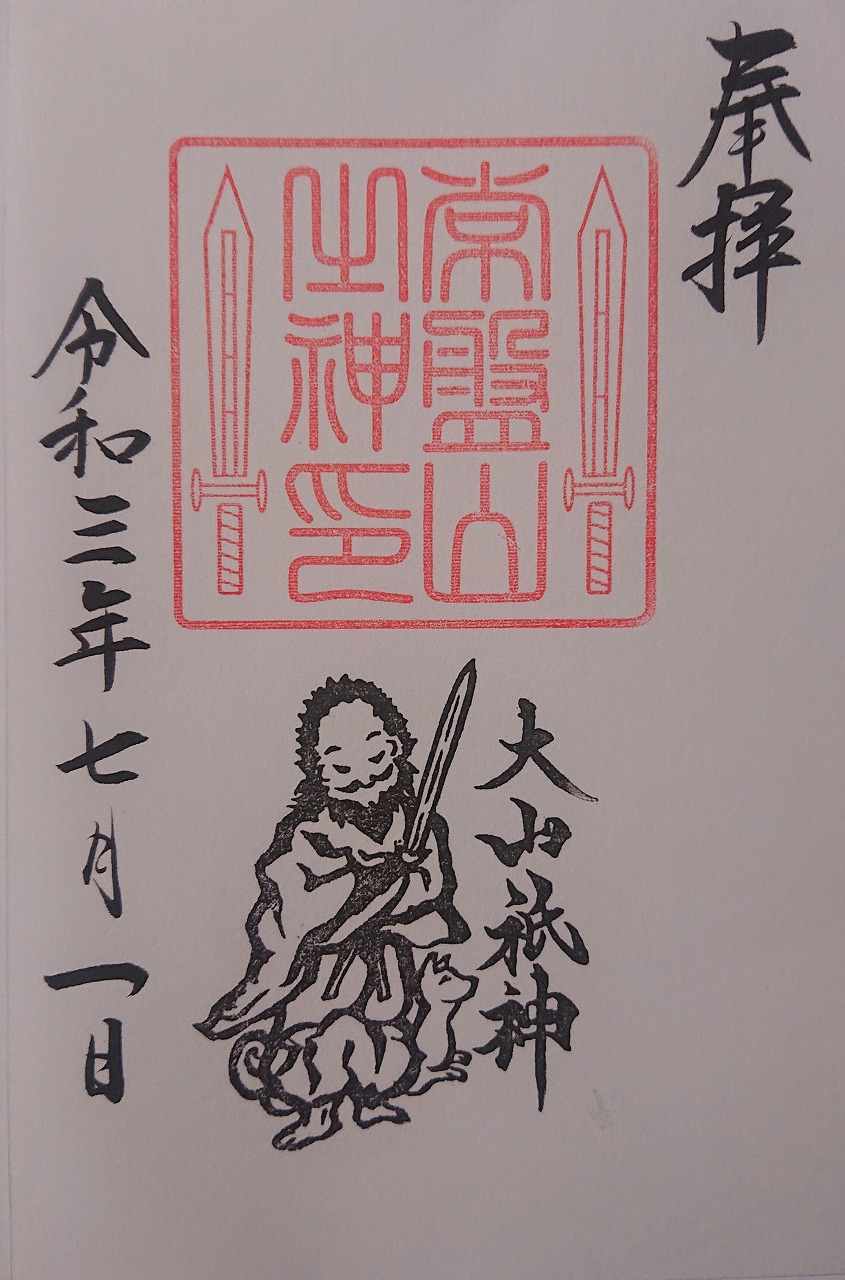 奉拝
常盤山
之神印
大山祇神
令和三年七月一日